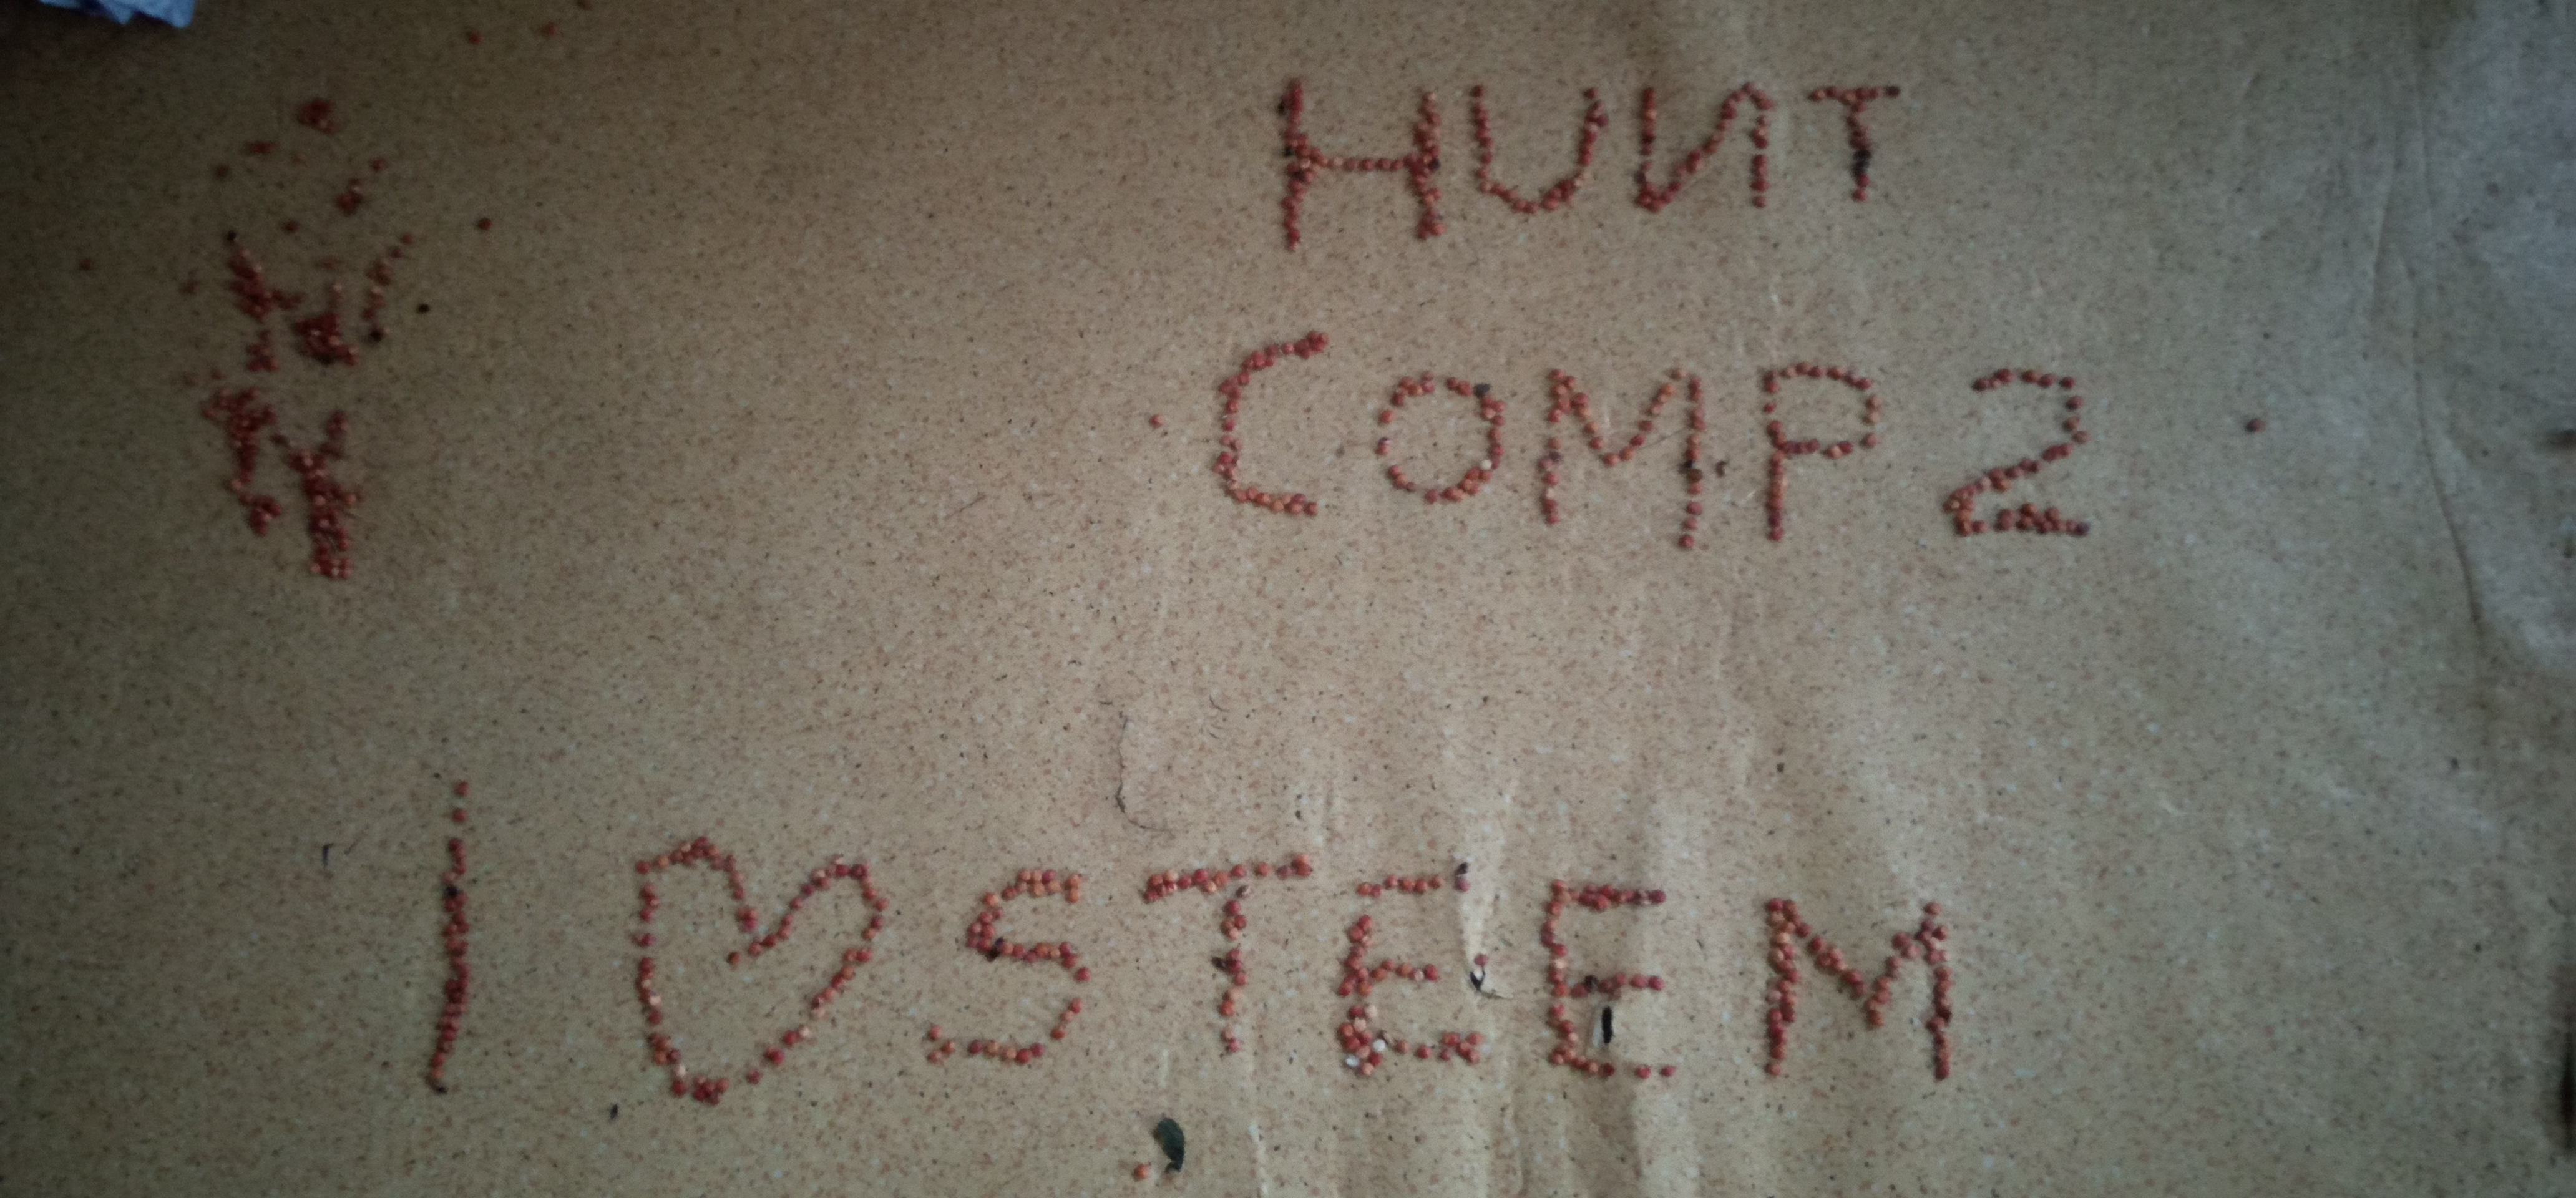 HUИT
COMP 2
I ♡ STEEM